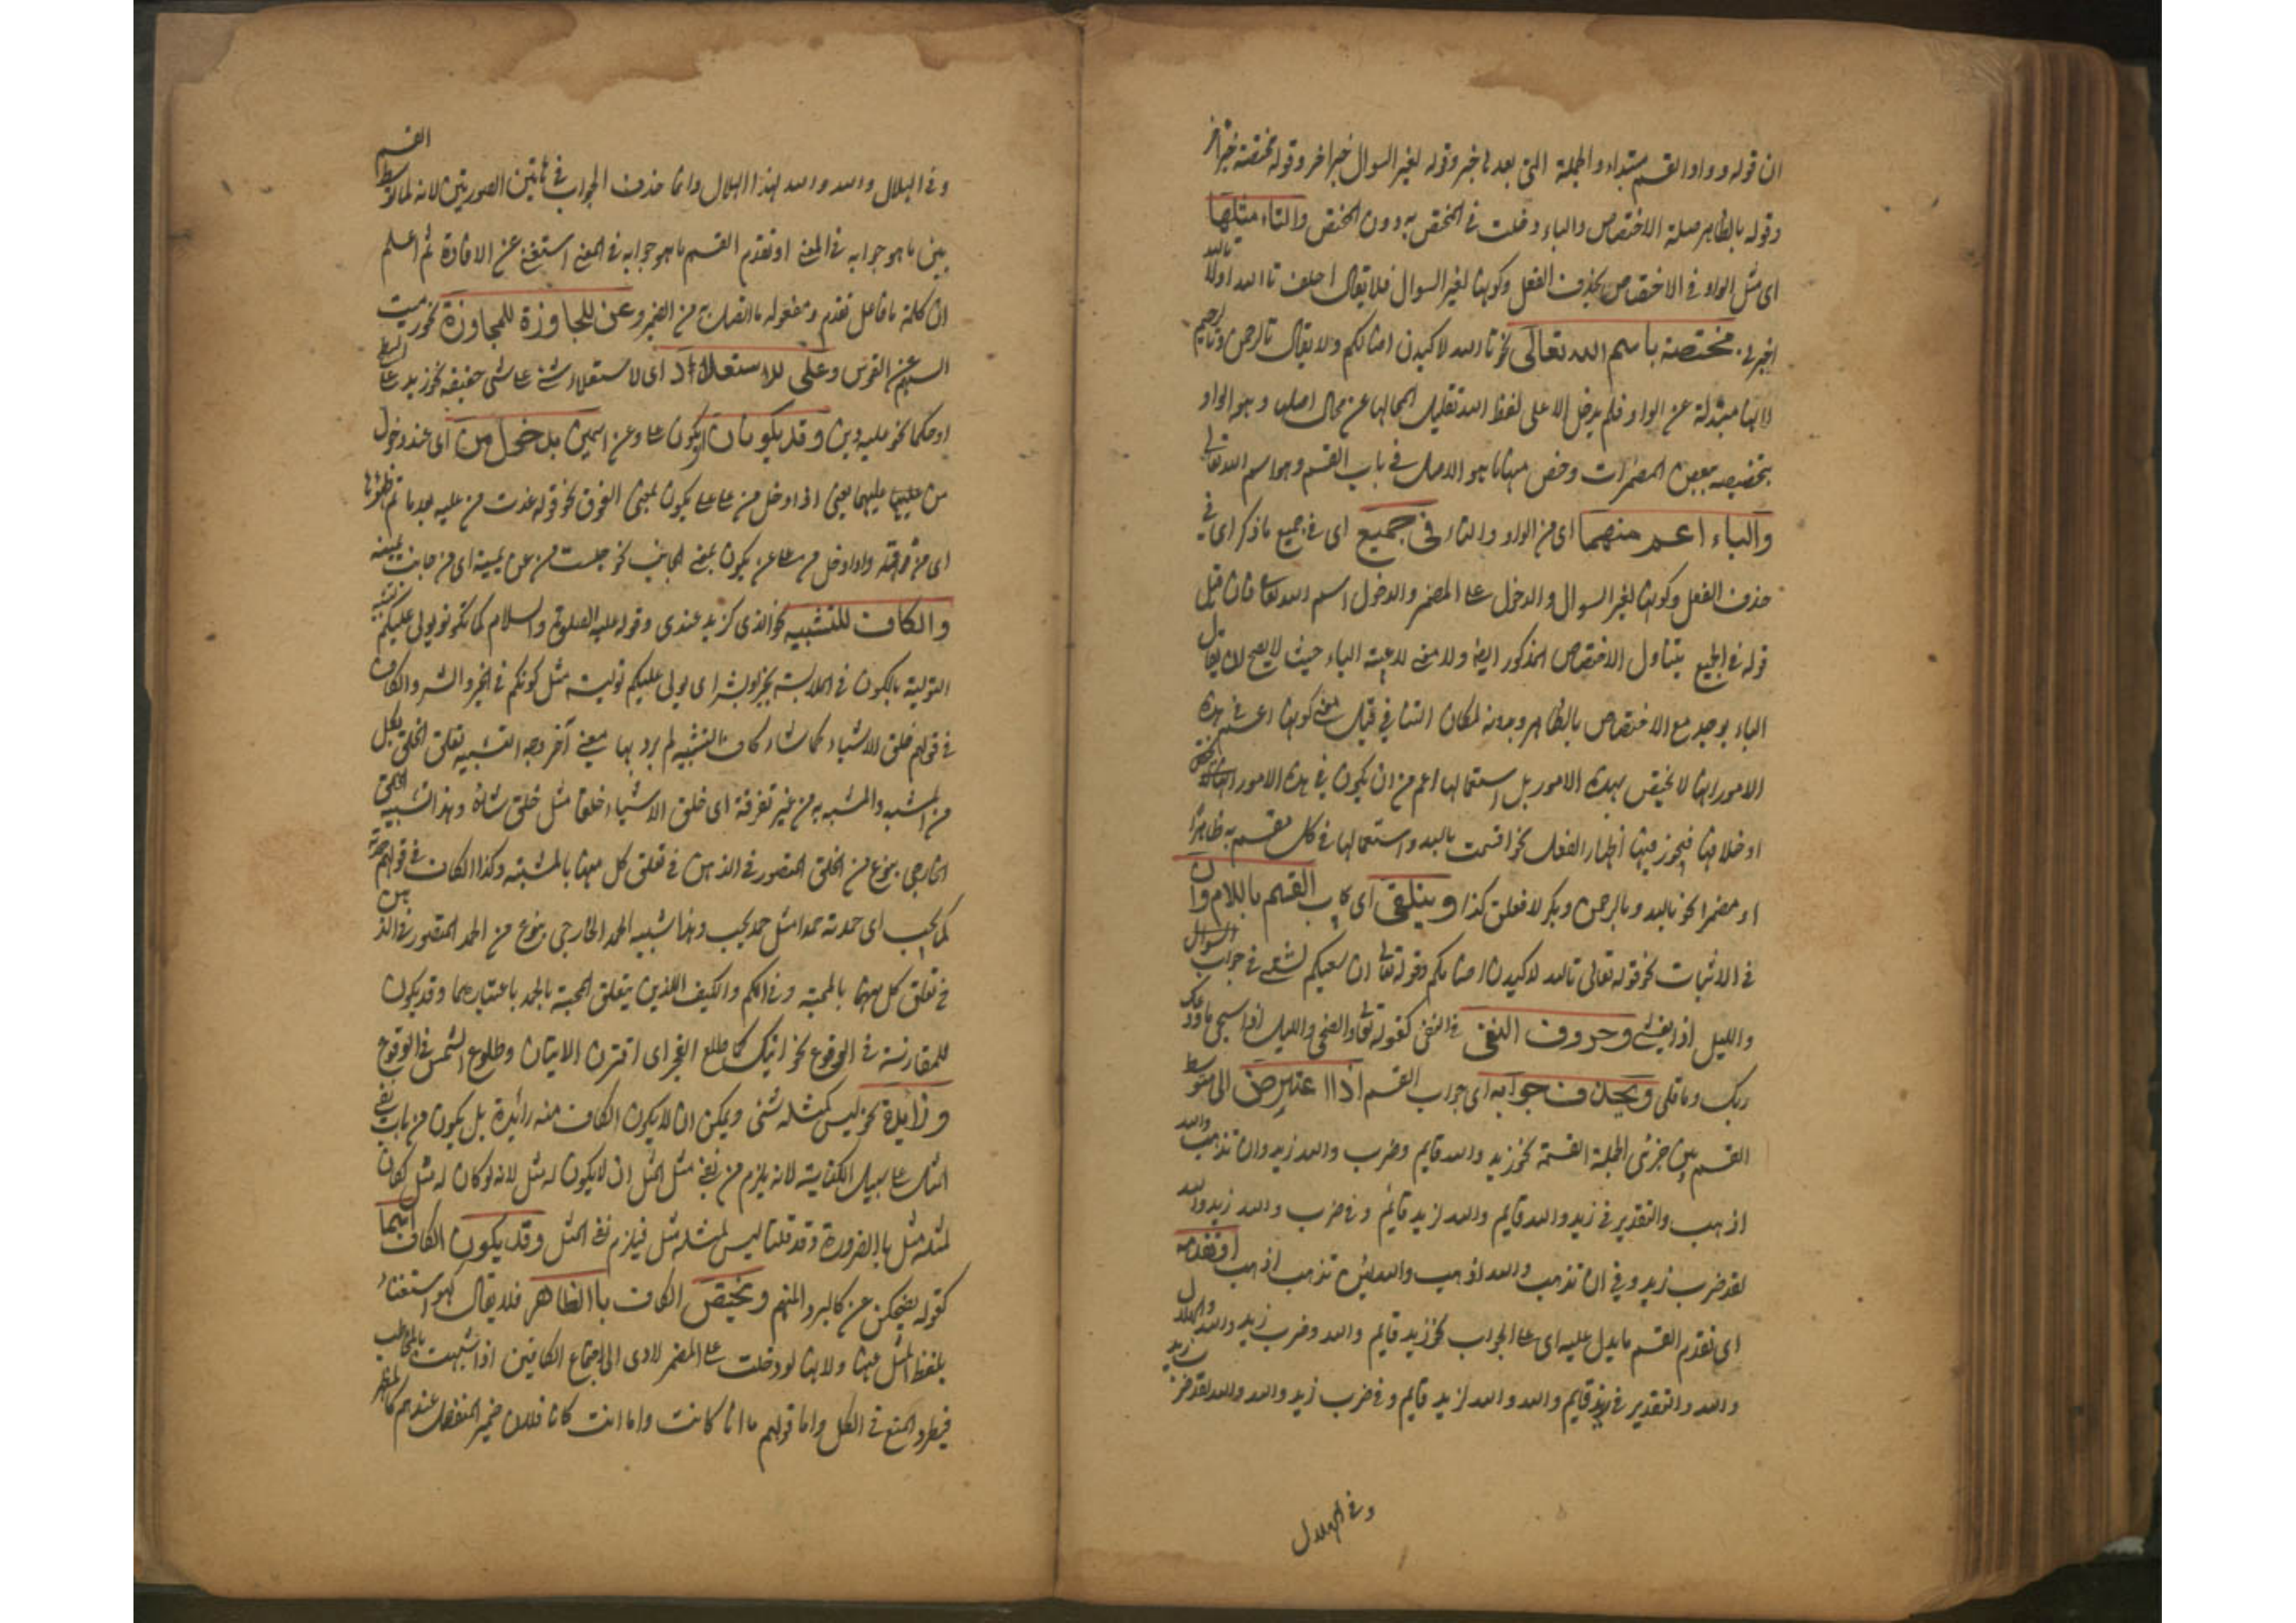 ان قوله وواو القسم مبتداء والجملة التى بعدها خبر وقوله لغير السوال خبر اخر وقوله مختصة خبر آخر
وقوله بالظاهر صلة الاختصاص والباء دخلت فى المختص به دون المختص والتاء مثلها
اى مثل الواو فى الاختصاص بحذف الفعل وكونها لغير السوال فلا يقال احلف تاالله اولا تالله
اخبرنى مختصة باسم الله تعالى نحو تالله لاكيدن اصنامكم ولا يقال تالرحمن وتالرحيم
لانها مبتدلة عن الواو فلم يدخل الا على لفظ الله تقليلا لمجالها عن مجال اصلها وهو الواو
بتخصيصه ببعض المضمرات وخص منها ما هو الاصل فى باب القسم وهو اسم الله تعالى
والباء اعم منهما اى من الواو والتاء فى جميع اى فى جميع ما ذكر اى فى
حذف الفعل وكونها لغير السوال والدخول على المضمر والدخول اسم الله تعالى فان قيل
قوله فى الجميع يتناول الاختصاص المذكور ايضا ولا معنى لاعمية الباء حيث لا يصح لان يقال
الباء يوجد مع الاختصاص بالظاهر وبدونه لمكان التنافى قيل معنى كونها اعم فى هذه
الامور انها لا يختص بهذه الامور بل استعمالها اعم من ان يكون فى هذه الامور
او خلافها فيجوز فيها اظهار الفعل نحو اقسمت بالله واستعمالها فى كل مقسم به ظاهرا
او مضمرا نحو بالله وبالرحمن وبك لافعلن كذا ويتلقى اى يجاب القسم باللام وان
فى الاثبات نحو قوله تعالى تالله لاكيدن اصنامكم وقوله تعالى ان سعيكم لشتى فى جواب السوال
والليل اذا يغشى وحروف النفى فى النفى كقوله تعالى والضحى والليل اذا سجى ما ودعك
ربك وما قلى ويحذف جوابه اى جواب القسم اذاا عترض اى توسط
القسم بين جزئى الجملة القسمة نحو زيد والله قايم وضرب والله زيد وان تذهب والله
اذهب والتقدير فى زيد والله قايم والله لزيد قايم وفى ضرب والله زيد والله
لقد ضرب زيد وفى ان تذهب والله اذهب والله لئن تذهب اذهب او تقدمه
اى تقدم القسم ما يدل عليه اى على الجواب نحو زيد قايم والله وضرب زيد والله والهلال
والله والتقدير فى زيد قايم والله والله لزيد قايم وفى ضرب زيد والله والله لقد ضرب زيد
وفى الهلال
وفى الهلال والله والله لهذا الهلال وانما حذف الجواب فى هاتين الصورتين لانه لما توسط القسم
بين ما هو جوابه فى المعنى او تقدم القسم ما هو جوابه فى المعنى استغنى عن الاعادة ثم اعلم
ان كلمة ما فاعل تقدم ومفعوله ما اتصل به من الضمير وعن للجاوزة للمجاوزة نحو رميت
السهم عن القوس وعلى للاستعلاء اى لاستعلاء شئ على شئ حقيقة نحو زيد على السطح
او حكما نحو عليه دين وقد يكونان اى يكون على وعن اسمين بدخول من اى عند دخول
من عليهما يعنى اذا دخل من على على يكون بمعنى الفوق نحو قوله غدت من عليه بعد ما تم ظمؤها
اى من فوقه واذا دخل من على عن يكون بمعنى الجانب نحو جلست من عن يمينه اى من جانب يمينه
والكاف للتشبيه نحو الذى كزيد عندى وقوله عليه الصلوة والسلام كما تكونو يولى عليكم تشبيه
التولية بالكون فى الملابسة بخير وبشر اى يولى عليكم تولية مثل كونكم فى الخير والشر والكاف
فى قولهم خلق الاشياء كما شاء كاف التشبيه لم يرد بها معنى آخر وجه التشبيه تعلق الخلق بكل
من المشبه والمشبه به من غير تفرقة اى خلق الاشياء خلقا مثل خلق شاه وهذا تشبيه الخلق
الخارجى بنوع من الخلق المتصور فى الذهن فى تعلق كل منهما بالمشية وكذا الكاف فى قولهم حمدته
كما يحب اى حمدته حمدا مثل حمد يحب وهذا تشبيه الحمد الخارجى بنوع من الحمد المتصور فى الذهن
فى تعلق كل منهما بالمحبة وفى الكم والكيف اللذين يتعلق المحبة بالحمد باعتبارهما وقد يكون
للمقارنة فى الوقوع نحو اتيتك كما طلع الفجر اى اقترن الاتيان وطلوع الشمس فى الوقوع
وزايدة نحو ليس كمثله شئى ويمكن ان لا يكون الكاف منه زائدة بل يكون من باب نفى
المثل على سبيل الكناية لانه يلزم من نفى مثل المثل ان لا يكون له مثل لانه لو كان له مثل لكان
لمثله مثل بالضرورة وقد قلنا ليس لمثله مثل فيلزم نفى المثل وقد يكون الكاف اسما
كقوله يضحكن عن كالبرد المنهم ويختص الكاف باالظاهر فلا يقال كهو استغناء
بلفظ المثل عنها ولانها لو دخلت على المضمر لادى الى اجتماع الكافين اذا شبهت بالمخاطب
فيطرد المنع فى الكل واما قولهم ما انا كانت واما انت كانا فلان ضمير المنفصل عندهم كالمظهر